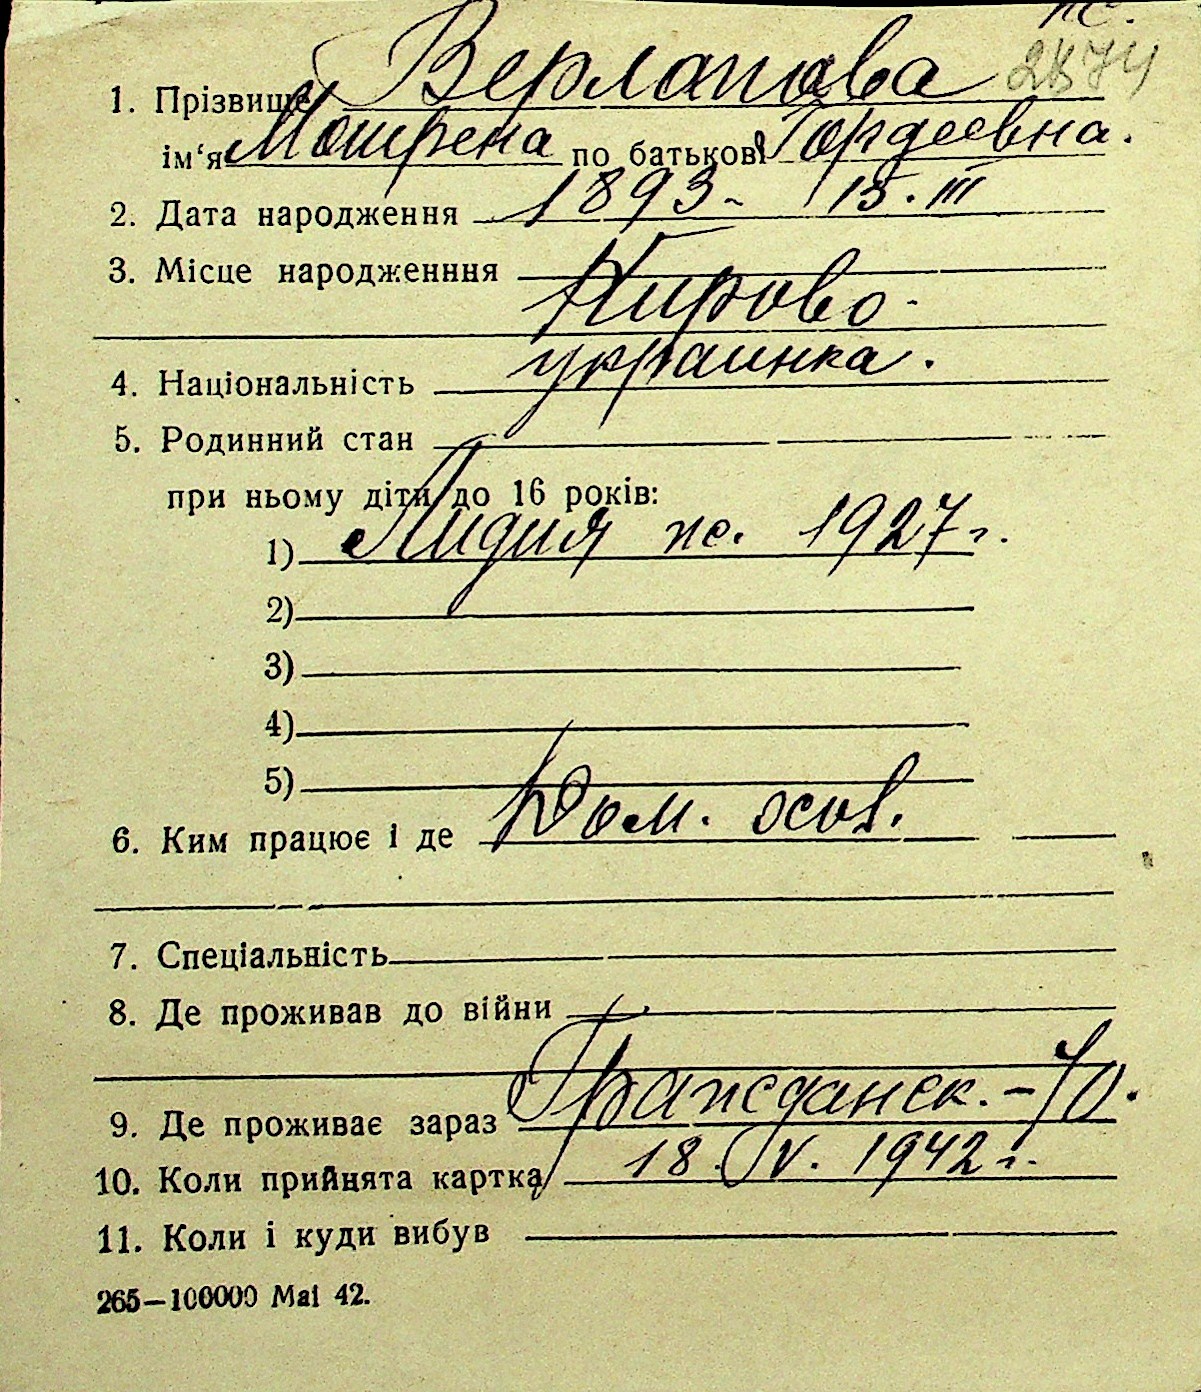 ж.
2874
1. Прізвище Верлапова
ім‘я Мотрена по батькові Гордеевна.
2. Дата народження 1893 - 15. III
3. Місце народженння
Кирово -
4. Національність украинка.
5. Родинний стан
при ньому діти до 16 років:
1) Лидия ж. 1927 г.
2)
3)
4)
5)
6. Ким працює і де Дом. осов.
7. Спеціальність
8. Де проживав до війни
9. Де проживає зараз Гражданск. - 40.
10. Коли прийнята картка 18. IV. 1942 г.
11. Коли і куди вибув
265—100000 Mai 42.